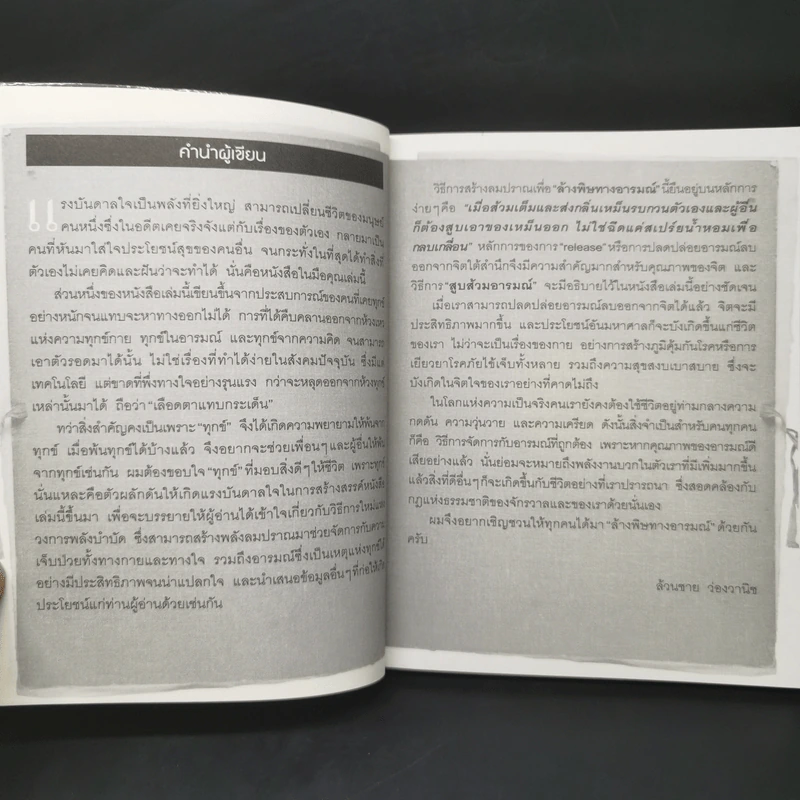 คำนำผู้เขียน
แรงบันดาลใจเป็นพลังที่ยิ่งใหญ่ สามารถเปลี่ยนชีวิตของมนุษย์
คนหนึ่งซึ่งในอดีตเคยจริงจังแต่กับเรื่องของตัวเอง กลายมาเป็น
คนที่หันมาใส่ใจประโยชน์สุขของคนอื่น จนกระทั่งในที่สุดได้ทำสิ่งที่
ตัวเองไม่เคยคิดและฝันว่าจะทำได้ นั่นคือหนังสือในมือคุณเล่มนี้
ส่วนหนึ่งของหนังสือเล่มนี้เขียนขึ้นจากประสบการณ์ของคนที่เคยทุกข์
อย่างหนักจนแทบจะหาทางออกไม่ได้ การที่ได้คืบคลานออกจากห้วงเหว
แห่งความทุกข์กาย ทุกข์ในอารมณ์ และทุกข์จากความคิด จนสามารถ
เอาตัวรอดมาได้นั้น ไม่ใช่เรื่องที่ทำได้ง่ายในสังคมปัจจุบัน ซึ่งมีแต่
เทคโนโลยี แต่ขาดที่พึ่งทางใจอย่างรุนแรง กว่าจะหลุดออกจากห้วงทุกข์
เหล่านั้นมาได้ ถือว่า "เลือดตาแทบกระเด็น"
ทว่าสิ่งสำคัญคงเป็นเพราะ "ทุกข์" จึงได้เกิดความพยายามให้พ้นจาก
ทุกข์ เมื่อพ้นทุกข์ได้บ้างแล้ว จึงอยากจะช่วยเพื่อนๆ และผู้อื่นให้พ้น
จากทุกข์เช่นกัน ผมต้องขอบใจ "ทุกข์" ที่มอบสิ่งดีๆ ให้ชีวิต เพราะทุกข์
นั่นแหละคือตัวผลักดันให้เกิดแรงบันดาลใจในการสร้างสรรค์หนังสือ
เล่มนี้ขึ้นมา เพื่อจะบรรยายให้ผู้อ่านได้เข้าใจเกี่ยวกับวิธีการใหม่
วงการพลังบำบัด ซึ่งสามารถสร้างพลังลมปราณมาช่วยจัดการกับความ
เจ็บป่วยทั้งทางกายและทางใจ รวมถึงอารมณ์ซึ่งเป็นเหตุแห่งทุกข์ได้
อย่างมีประสิทธิภาพจนน่าแปลกใจ และนำเสนอข้อมูลอื่นๆ ที่ก่อให้เกิด
ประโยชน์แก่ท่านผู้อ่านด้วยเช่นกัน
วิธีการสร้างลมปราณเพื่อ "ล้างพิษทางอารมณ์" นี้ยืนอยู่บนหลักการ
ง่ายๆ คือ "เมื่อส้วมเต็มและส่งกลิ่นเหม็นรบกวนตัวเองและผู้อื่น
ก็ต้องสูบเอาของเหม็นออก ไม่ใช่ฉีดแค่สเปรย์น้ำหอมเพื่อ
กลบเกลื่อน" หลักการของการ "release" หรือการปลดปล่อยอารมณ์ลบ
ออกจากจิตใต้สำนึกจึงมีความสำคัญมากสำหรับคุณภาพของจิต และ
วิธีการ "สูบส้วมอารมณ์" จะมีอธิบายไว้ในหนังสือเล่มนี้อย่างชัดเจน
เมื่อเราสามารถปลดปล่อยอารมณ์ลบออกจากจิตได้แล้ว จิตจะมี
ประสิทธิภาพมากขึ้น และประโยชน์อันมหาศาลก็จะบังเกิดขึ้นแก่ชีวิต
ของเรา ไม่ว่าจะเป็นเรื่องของกาย อย่างการสร้างภูมิคุ้มกันโรคหรือการ
เยียวยาโรคภัยไข้เจ็บทั้งหลาย รวมถึงความสุขสงบเบาสบาย ซึ่งจะ
บังเกิดในจิตใจของเราอย่างที่คาดไม่ถึง
ในโลกแห่งความเป็นจริงคนเรายังคงต้องใช้ชีวิตอยู่ท่ามกลางความ
กดดัน ความวุ่นวาย และความเครียด ดังนั้นสิ่งจำเป็นสำหรับคนทุกคน
ก็คือ วิธีการจัดการกับอารมณ์ที่ถูกต้อง เพราะหากคุณภาพของอารมณ์ดี
เสียอย่างแล้ว นั่นย่อมจะหมายถึงพลังงานบวกในตัวเราที่มีเพิ่มมากขึ้น
แล้วสิ่งที่ดีอื่นๆ ก็จะเกิดขึ้นกับชีวิตอย่างที่เราปรารถนา ซึ่งสอดคล้องกับ
กฎแห่งธรรมชาติของจักรวาลและของเราด้วยนั่นเอง
ผมจึงอยากเชิญชวนให้ทุกคนได้มา "ล้างพิษทางอารมณ์" ด้วยกัน
ครับ
ล้วนชาย ว่องวานิช